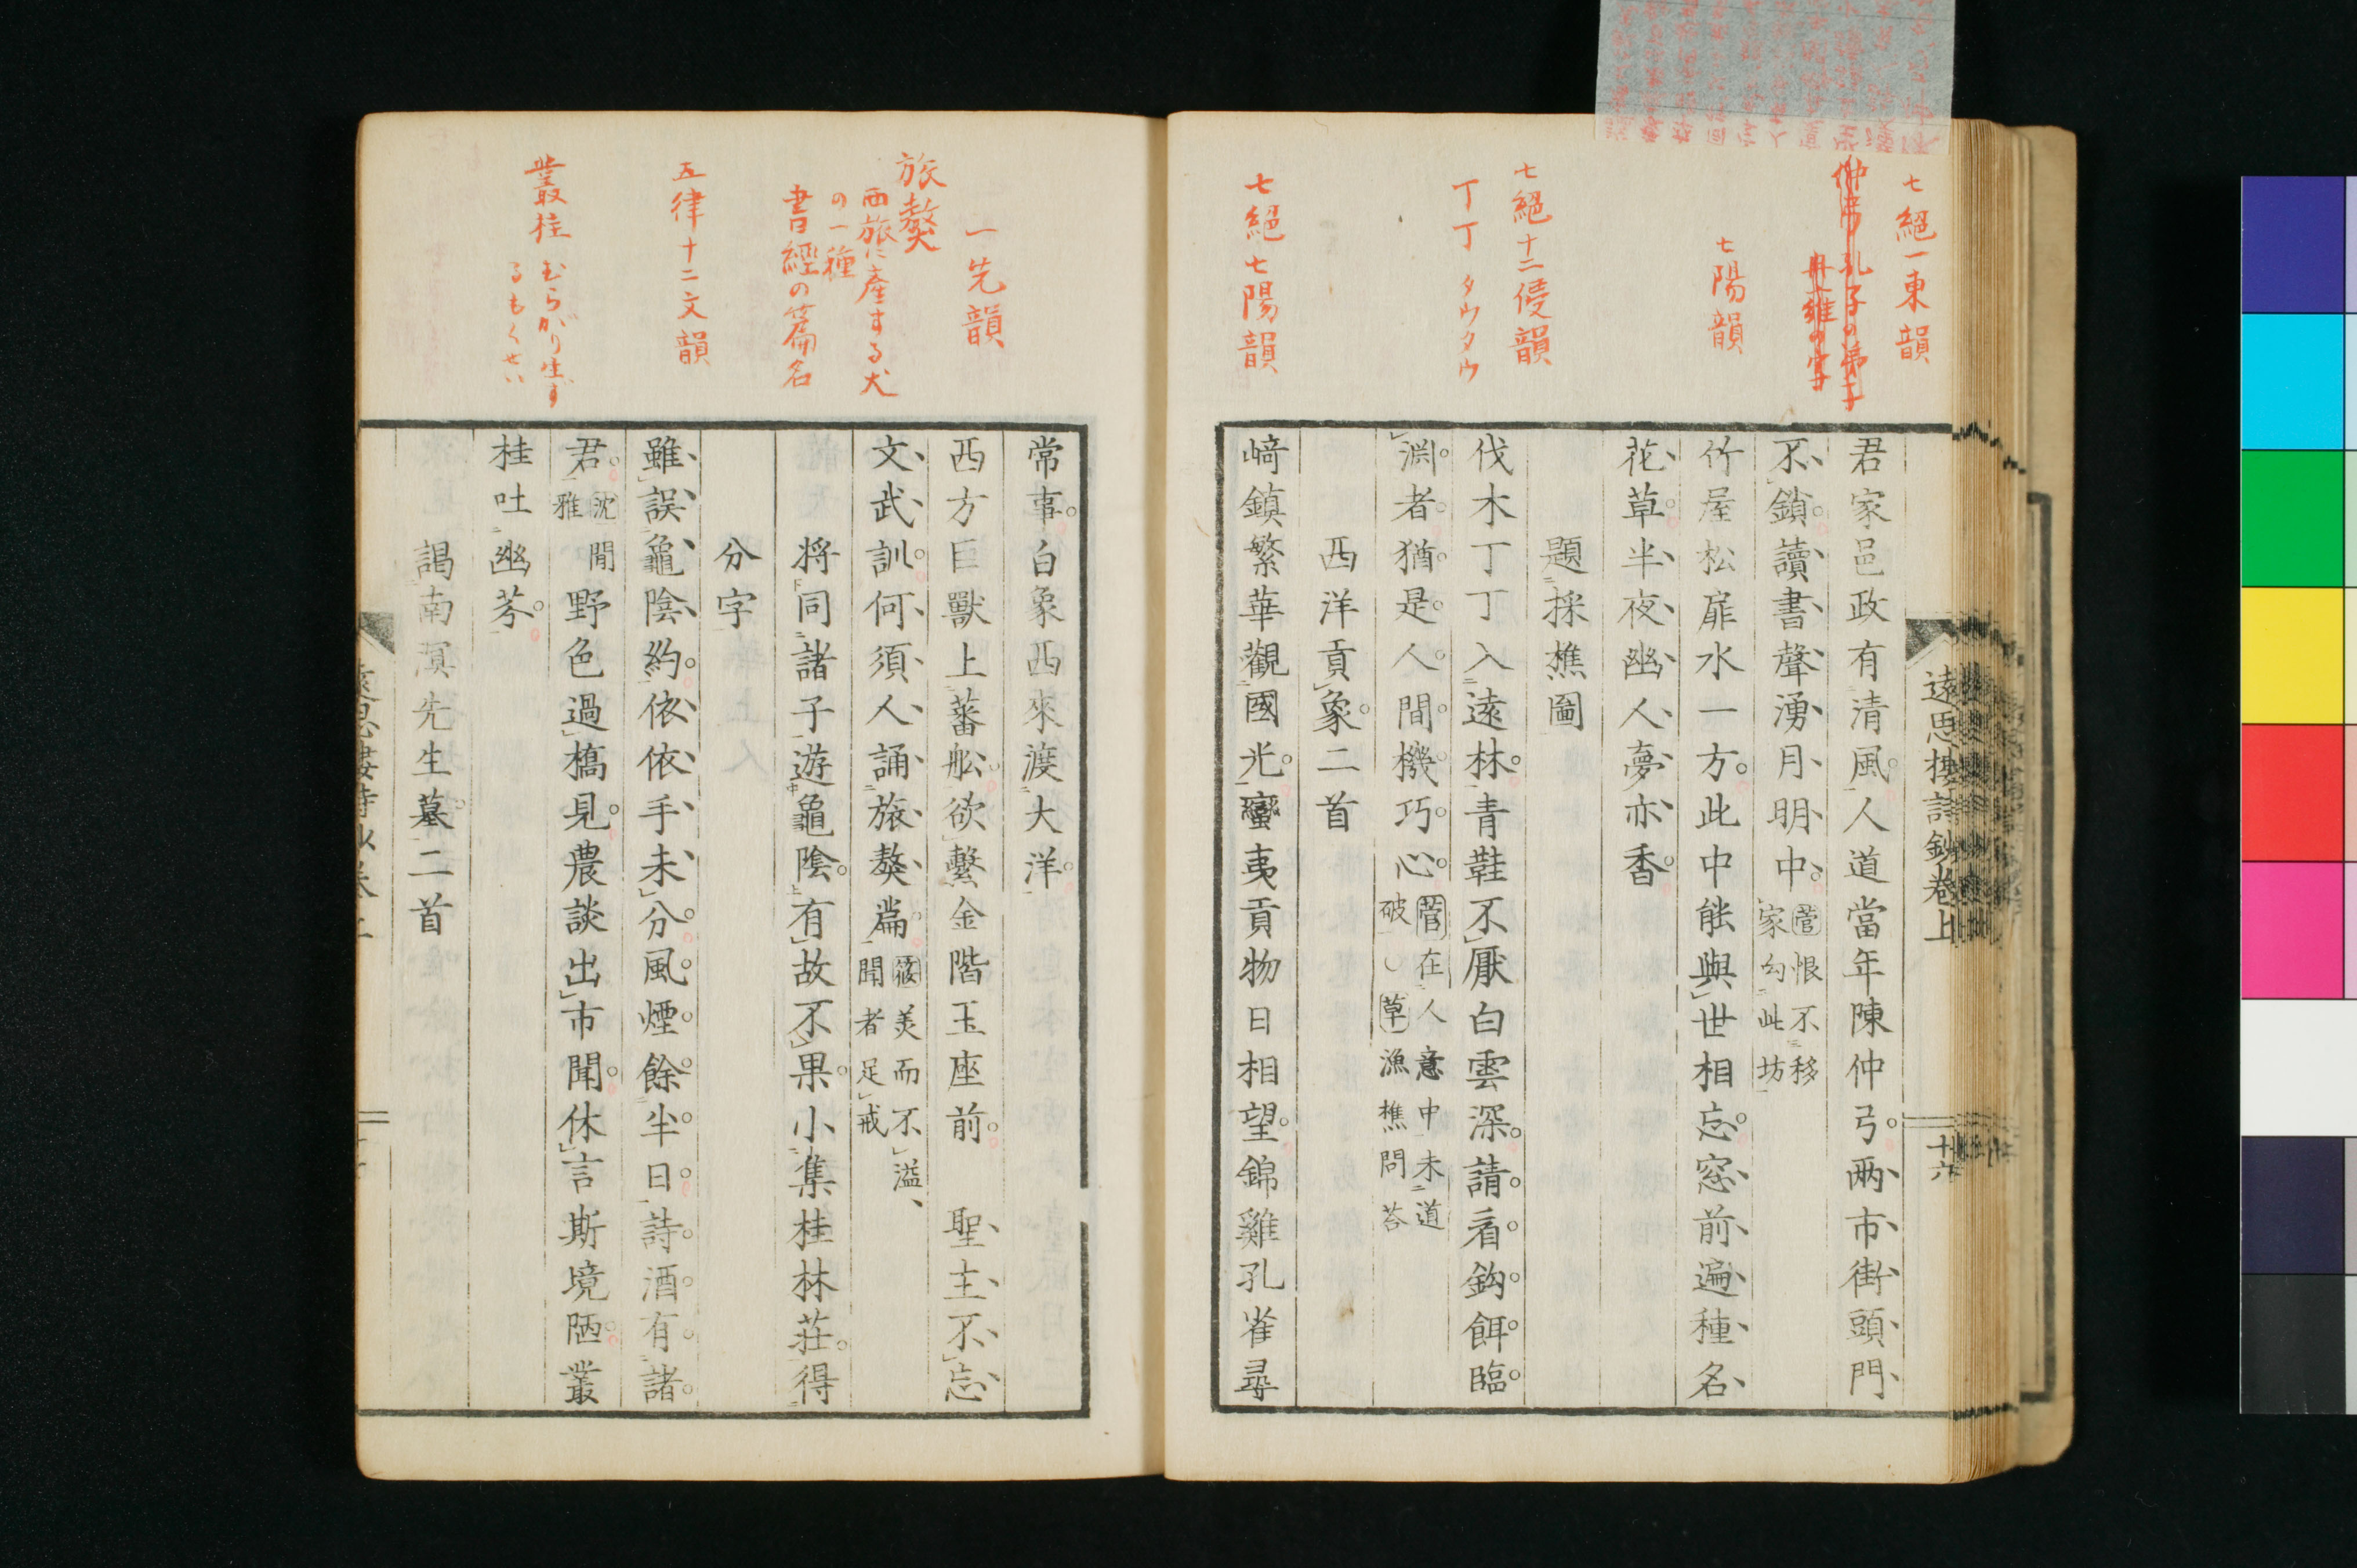 七絕一東韻
七陽韻
七絕十二侵韻
丁丁タウタウ
七絕七陽韻
遠思樓詩鈔卷上
十六
君家邑政有清風人道當年陳仲弓兩市街頭門
不鎖讀書聲湧月明中菅恨不移家勾此坊
竹屋松扉水一方此中能與世相忘窓前遍種名
花草半夜幽人夢亦香
題採樵圖
伐木丁丁入遠林青鞋不厭白雲深請看鈎餌臨
淵者猶是人間機巧心菅在人意中未道破草漁樵問荅
西洋貢象二首
﨑鎮繁華觀國光蠻夷貢物日相望錦雞孔雀尋
一先韻
旅獒
西旅に產する犬
の一種
書經の篇名
五律十二文韻
叢桂
むらがり生ず
るもくせい
常事白象西來渡大洋
西方巨獸上蕃舩欲繫金階玉座前 聖主不忘
文武訓何須人誦旅獒篇筱美而不溢、聞者足戒
將同諸子遊龜陰有故不果小集桂林莊得
分字
雖誤龜陰約依依手未分風煙餘半日詩酒有諸
君沈閒雅野色過橋見農談出市聞休言斯境陋叢
桂吐幽芬
謁南溟先生墓二首